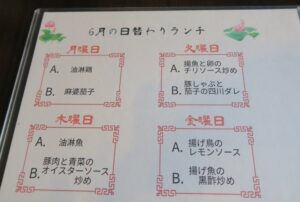 6月の日替わりランチ
月曜日
A. 油淋鶏
B. 麻婆茄子
火曜日
A. 揚魚と卵の
チリソース炒め
B. 豚しゃぶと
茄子の四川ダレ
木曜日
A. 油淋魚
B. 豚肉と青菜の
オイスターソース
炒め
金曜日
A. 揚げ鳥の
レモンソース
B. 揚げ魚の
黒酢炒め